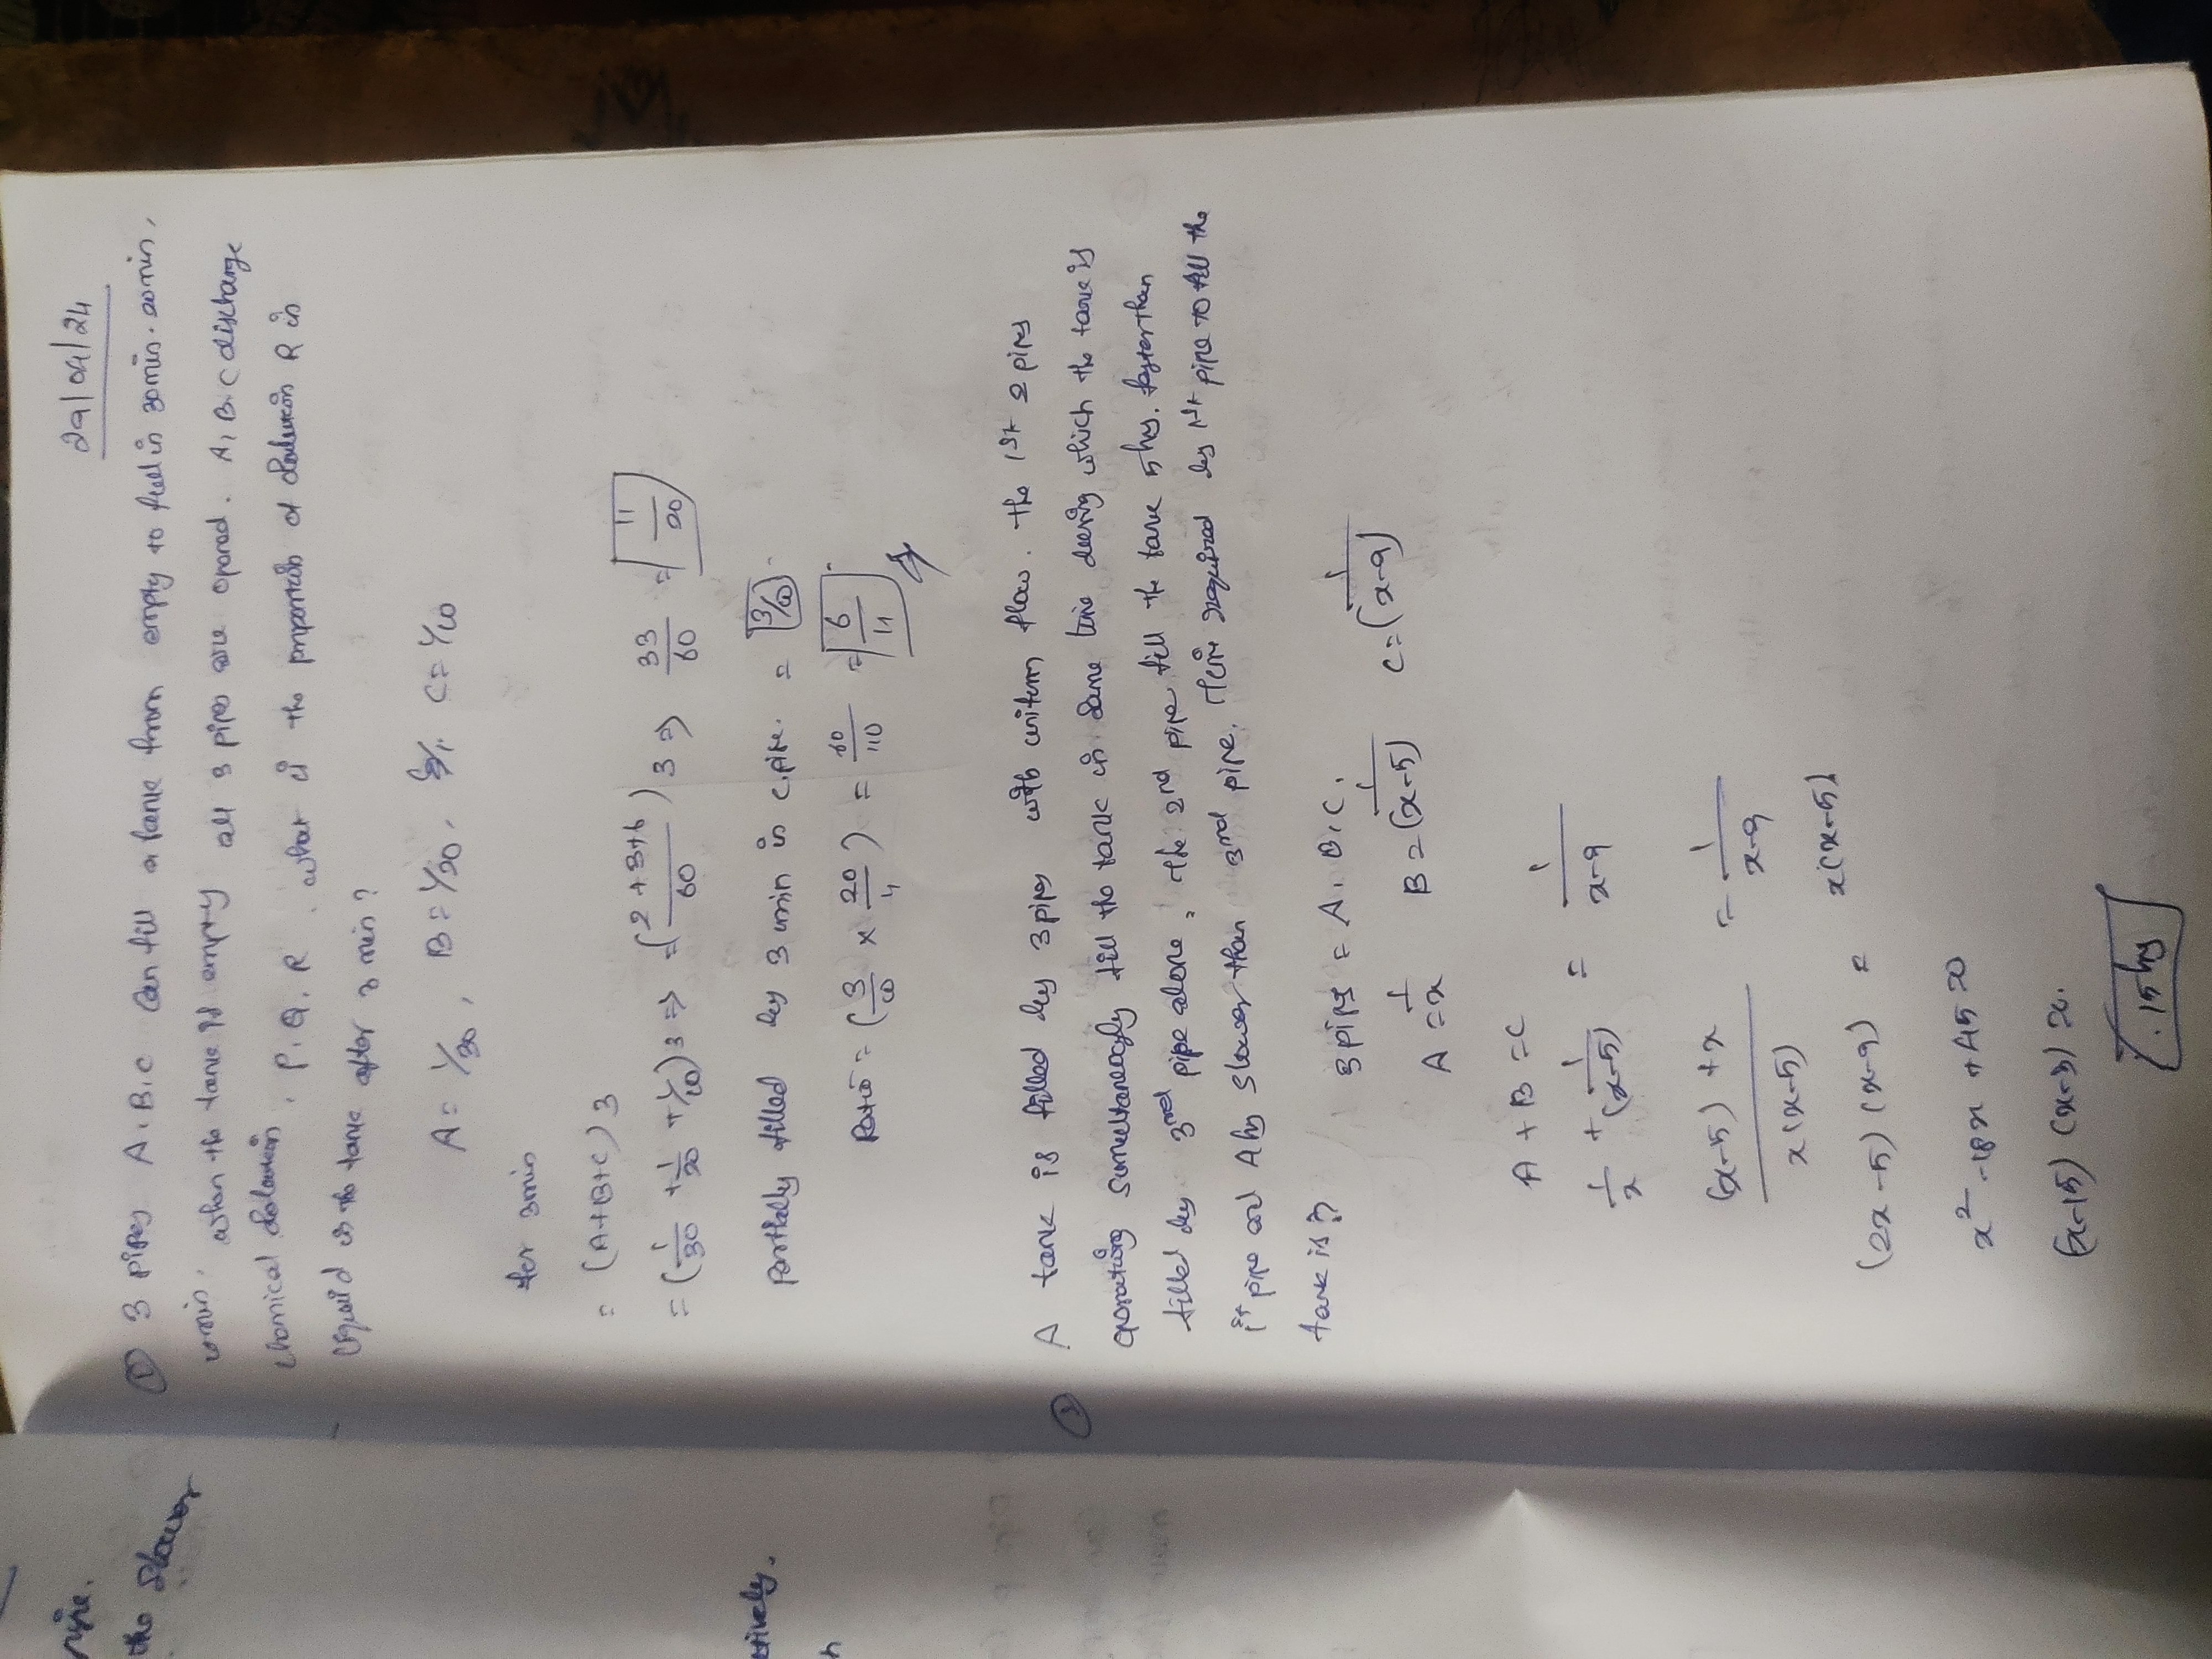 ripe.
the Slower
atively.
h
29/04/24
① 3 pipes A, B, C Can fill a tank from empty to full in 30min, 20min,
10min, when the tank is empty all 3 pipes are opened. A, B, C discharge
chemical solution, P, Q, R. what is the proportion of solution R in
liquid in the tank after 3 min?
A = 1/30, B = 1/20, C = 1/10
for 3min
= (A+B+C) 3
= (1/30 + 1/20 + 1/10) 3 => = (2+3+6/60) 3 => 33/60 = 11/20
Partially filled by 3 min in C, pipe. = 3/10.
Ratio = (3/10 × 20/11) = 60/110 = 6/11.
② A tank is filled by 3 pipes with uniform flow. the 1st 2 pipes
operating Simultaneously fill the tank in same time during which the tank is
filled by 3rd pipe alone, The 2nd pipe fill the tank 5 hrs. faster than
1st pipe and 4hrs Slower than 3rd pipe. Time required by 1st pipe to fill the
tank is?
3 pipes = A, B, C.
A = 1/x B = 1/(x-5) C = 1/(x-9)
A + B = C
1/x + 1/(x-5) = 1/x-9
(x-5) + x / x(x-5) = 1/x-9
(2x-5) (x-9) = x(x-5)
x² - 18x + 45 = 0
(x-15) (x-3) x.
15hrs